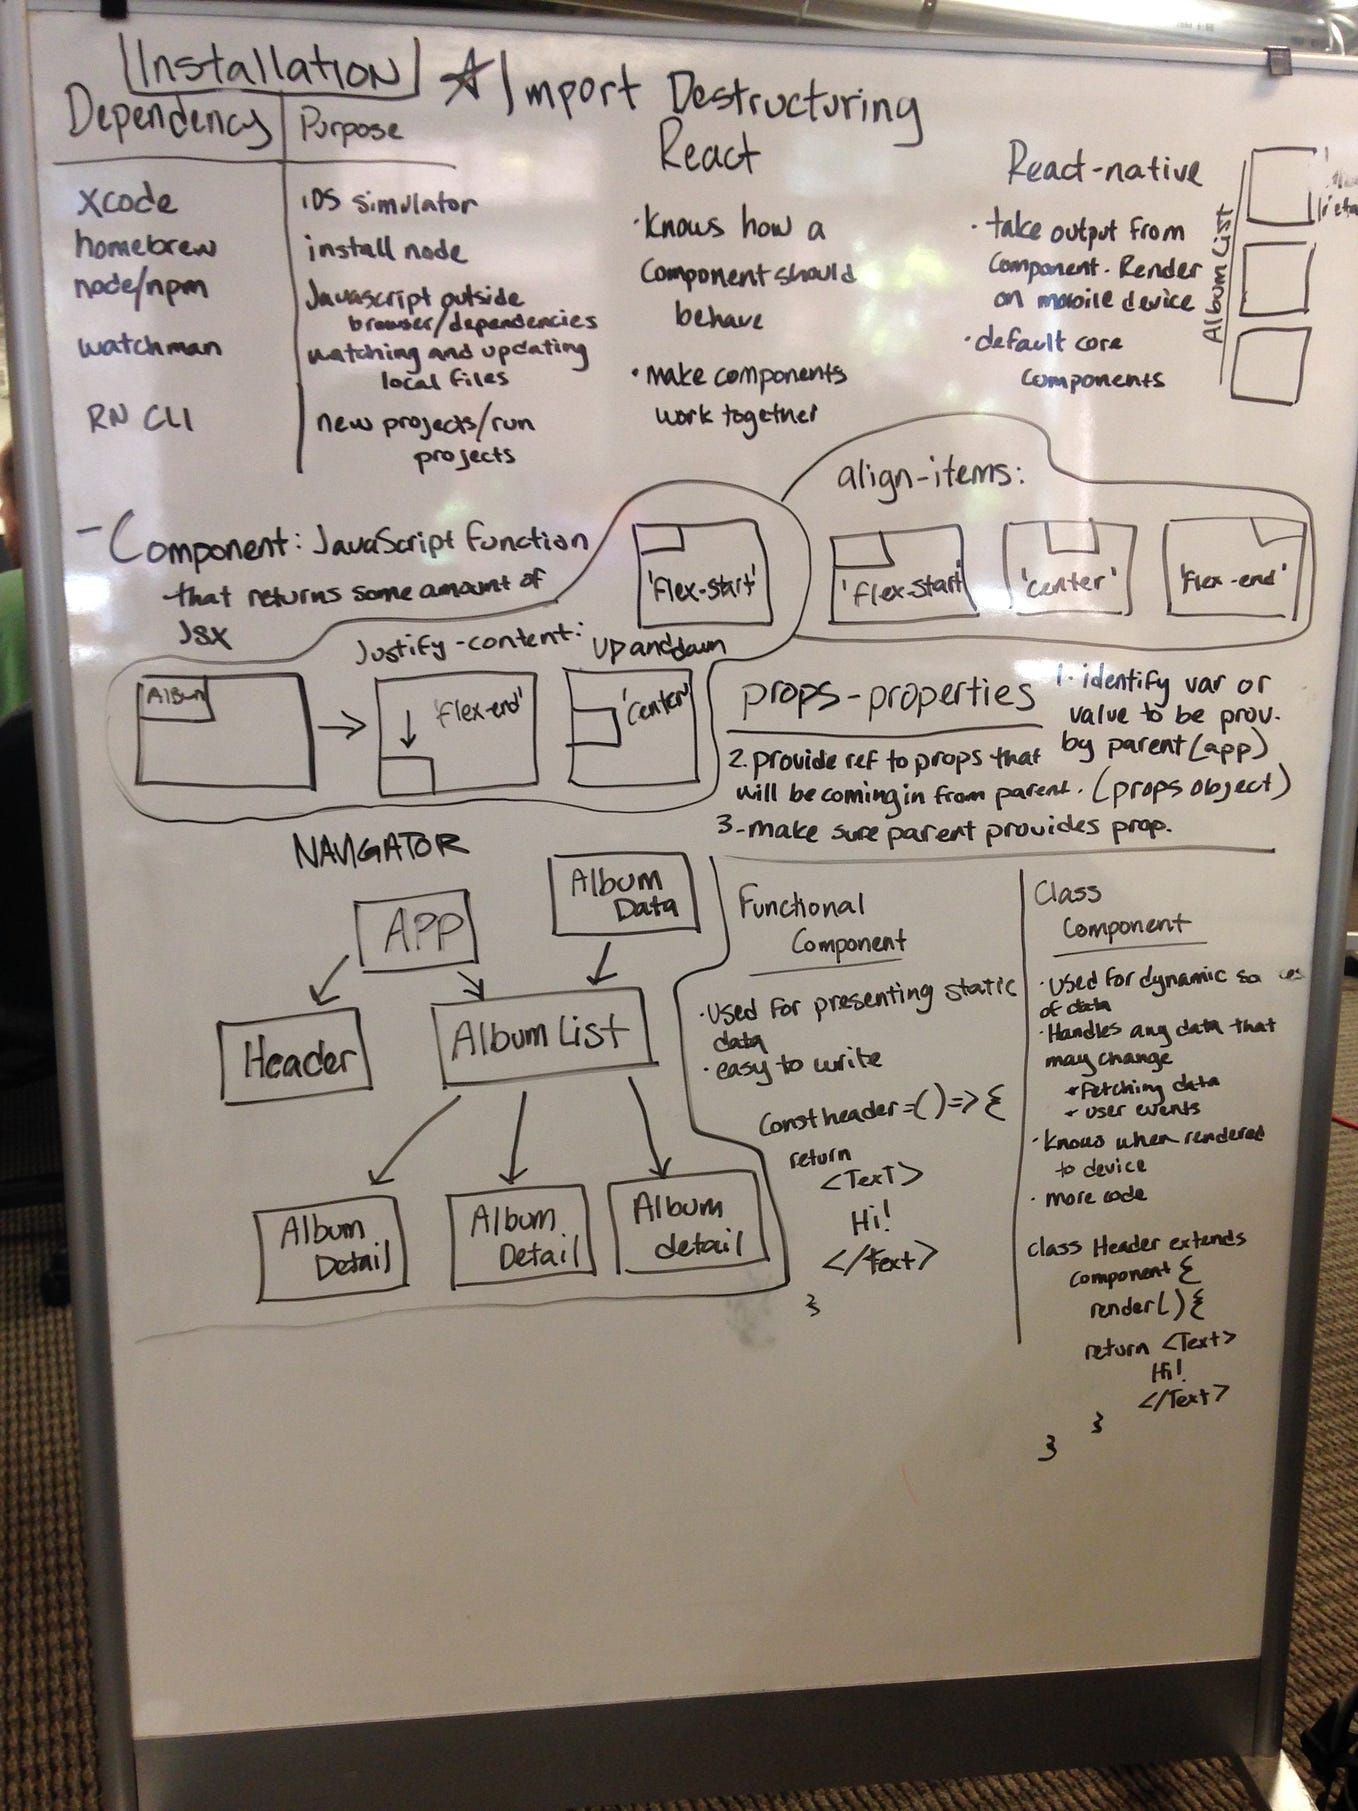 Installation
☆ Import Destructuring
Dependency | Purpose
xcode | iOS simulator
homebrew | install node
node/npm | Javascript outside
browser/dependencies
watchman | watching and updating
local files
RN CLI | new projects/run
projects
React
• Knows how a
component should
behave
• make components
work together
React-native
• take output from
component. Render
on mobile device
• default core
components
Album List
- Component: JavaScript function
that returns some amount of
JSX
Justify-content: up and down
'flex-start'
Album
'flex-end'
'center'
align-items:
'flex-start'
'center'
'flex-end'
props - properties
1. identify var or
value to be prov.
by parent (app)
2. provide ref to props that
will be coming in from parent. (props object)
3 - make sure parent provides prop.
NAVIGATOR
APP
Album
Data
Header
Album List
Album
Detail
Album
Detail
Album
detail
Functional
Component
• used for presenting static
data
• easy to write
Const header = ( ) => {
return
<Text>
Hi!
</Text>
}
Class
Component
• used for dynamic
of data
• Handles any data that
may change
* fetching data
* user events
• knows when rendered
to device
• more code
class Header extends
component {
render( ) {
return <Text>
Hi!
</Text>
}
}